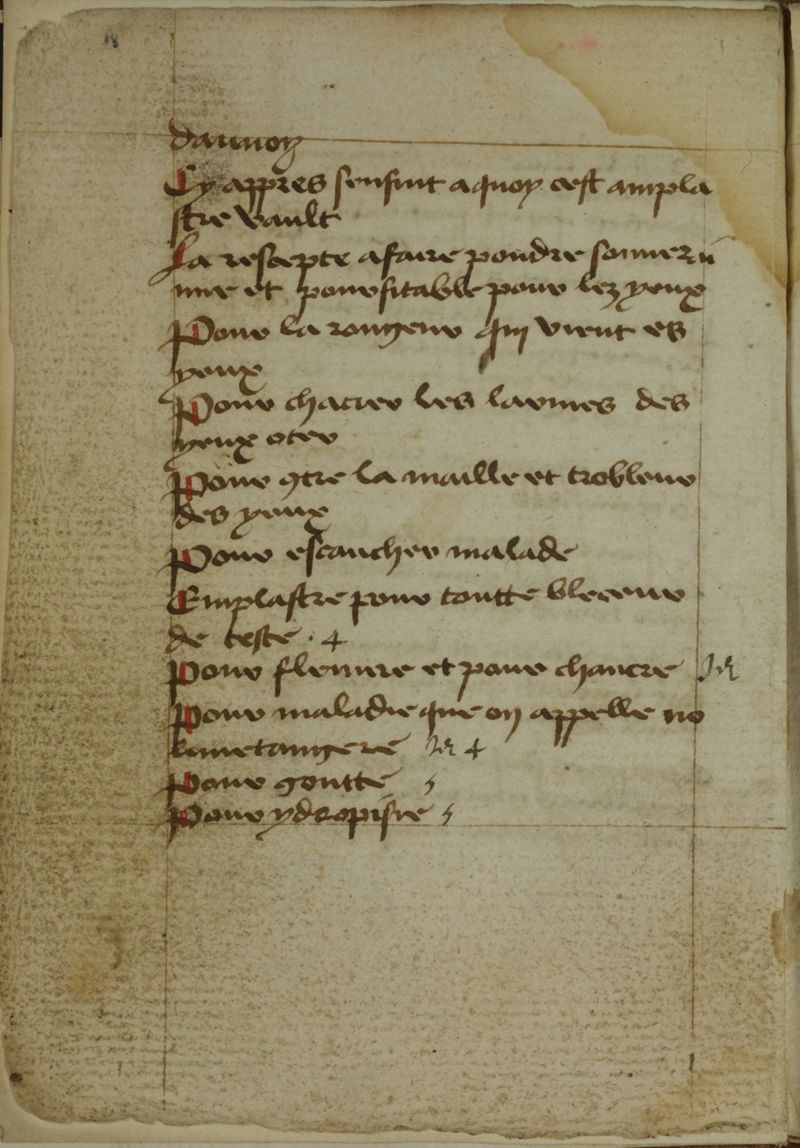 dannoy
Cy appres sensuit a quoy cest ampla
stre vault
La rescepte a faire pouldre
et pour les yeux
Pour la rongeur qui vient es
yeux
Pour chacier les larmes des
yeux oter
Pour 9tre la maille et trobleur
des yeux
Pour estancher malade
Emplastre pour toutte bleceure
de teste . 4
Pour flemme et pour chancre
Pour maladie que on appelle no
limetangere
Pour goutte
Pour ydropisie